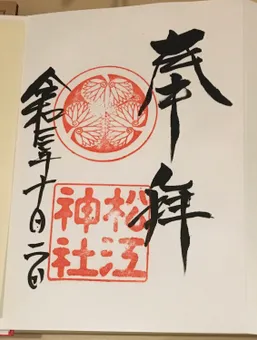 奉拝
松江
神社
令和 年十月二日